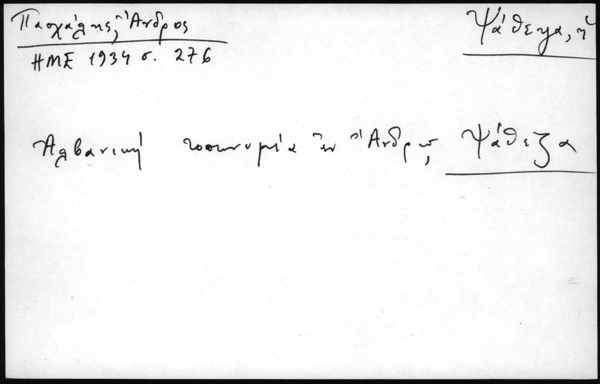 Πασχάλης, Ἄνδρος
ΗΜΕ 1934 σ. 276
Ψάθεζα, ἡ
Ἀλβανική τοπωνυμία ἐν Ἄνδρῳ, Ψάθεζα